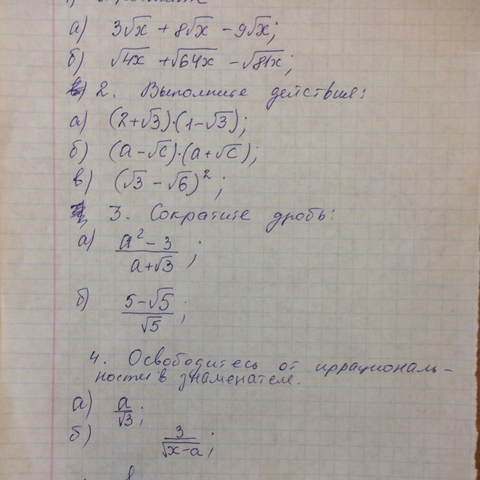 а) 3√x + 8√x - 9√x;
б) √4x + √64x - √81x;
2. Выполните действия:
а) (2+√3)·(1-√3);
б) (a-√c)·(a+√c);
в) (√3 - √6)²;
3. Сократите дробь:
а) (a² - 3)/(a+√3);
б) (5-√5)/√5;
4. Освободитесь от иррациональ-
ности в знаменателе.
а) a/√3;
б) 3/√(x-a);